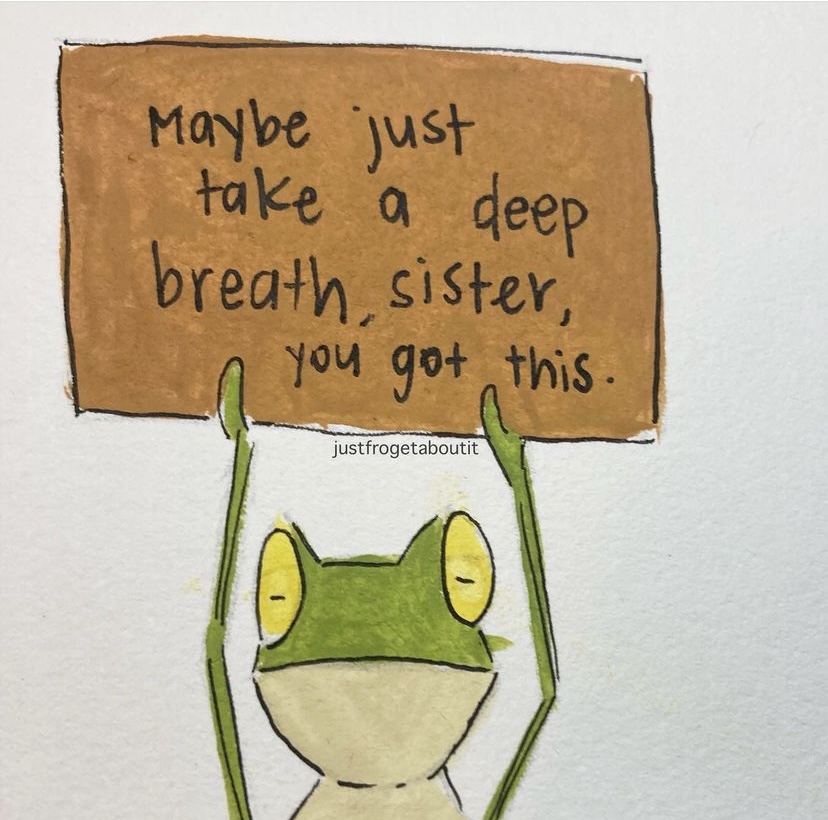 Maybe just
take a deep
breath, sister,
you got this.
justfrogetaboutit